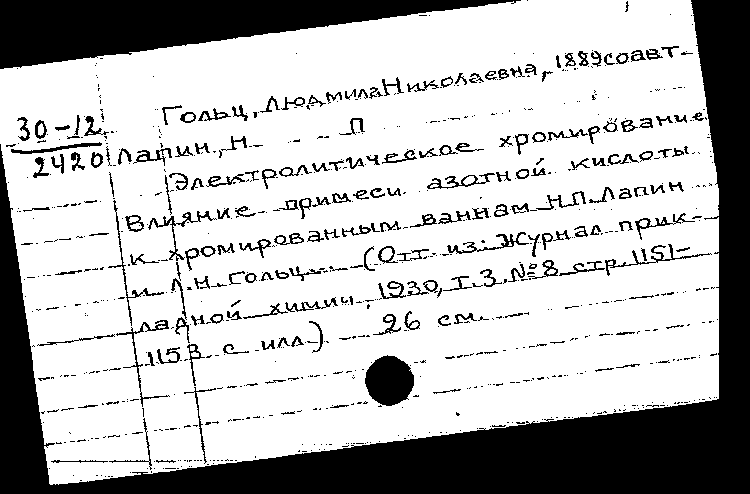 Гольц, Людмила Николаевна, 1889 соавт.
30-12
2420
Лапин, Н. П
Электролитическое хромирование
Влияние примеси азотной кислоты
к хромированным ваннам Н.П. Лапин
и Л.Н. Гольц... (Отт. из: Журнал прик-
ладной химии, 1930, т. 3. №8 стр. 1151-
1153 с илл.) 26 см.